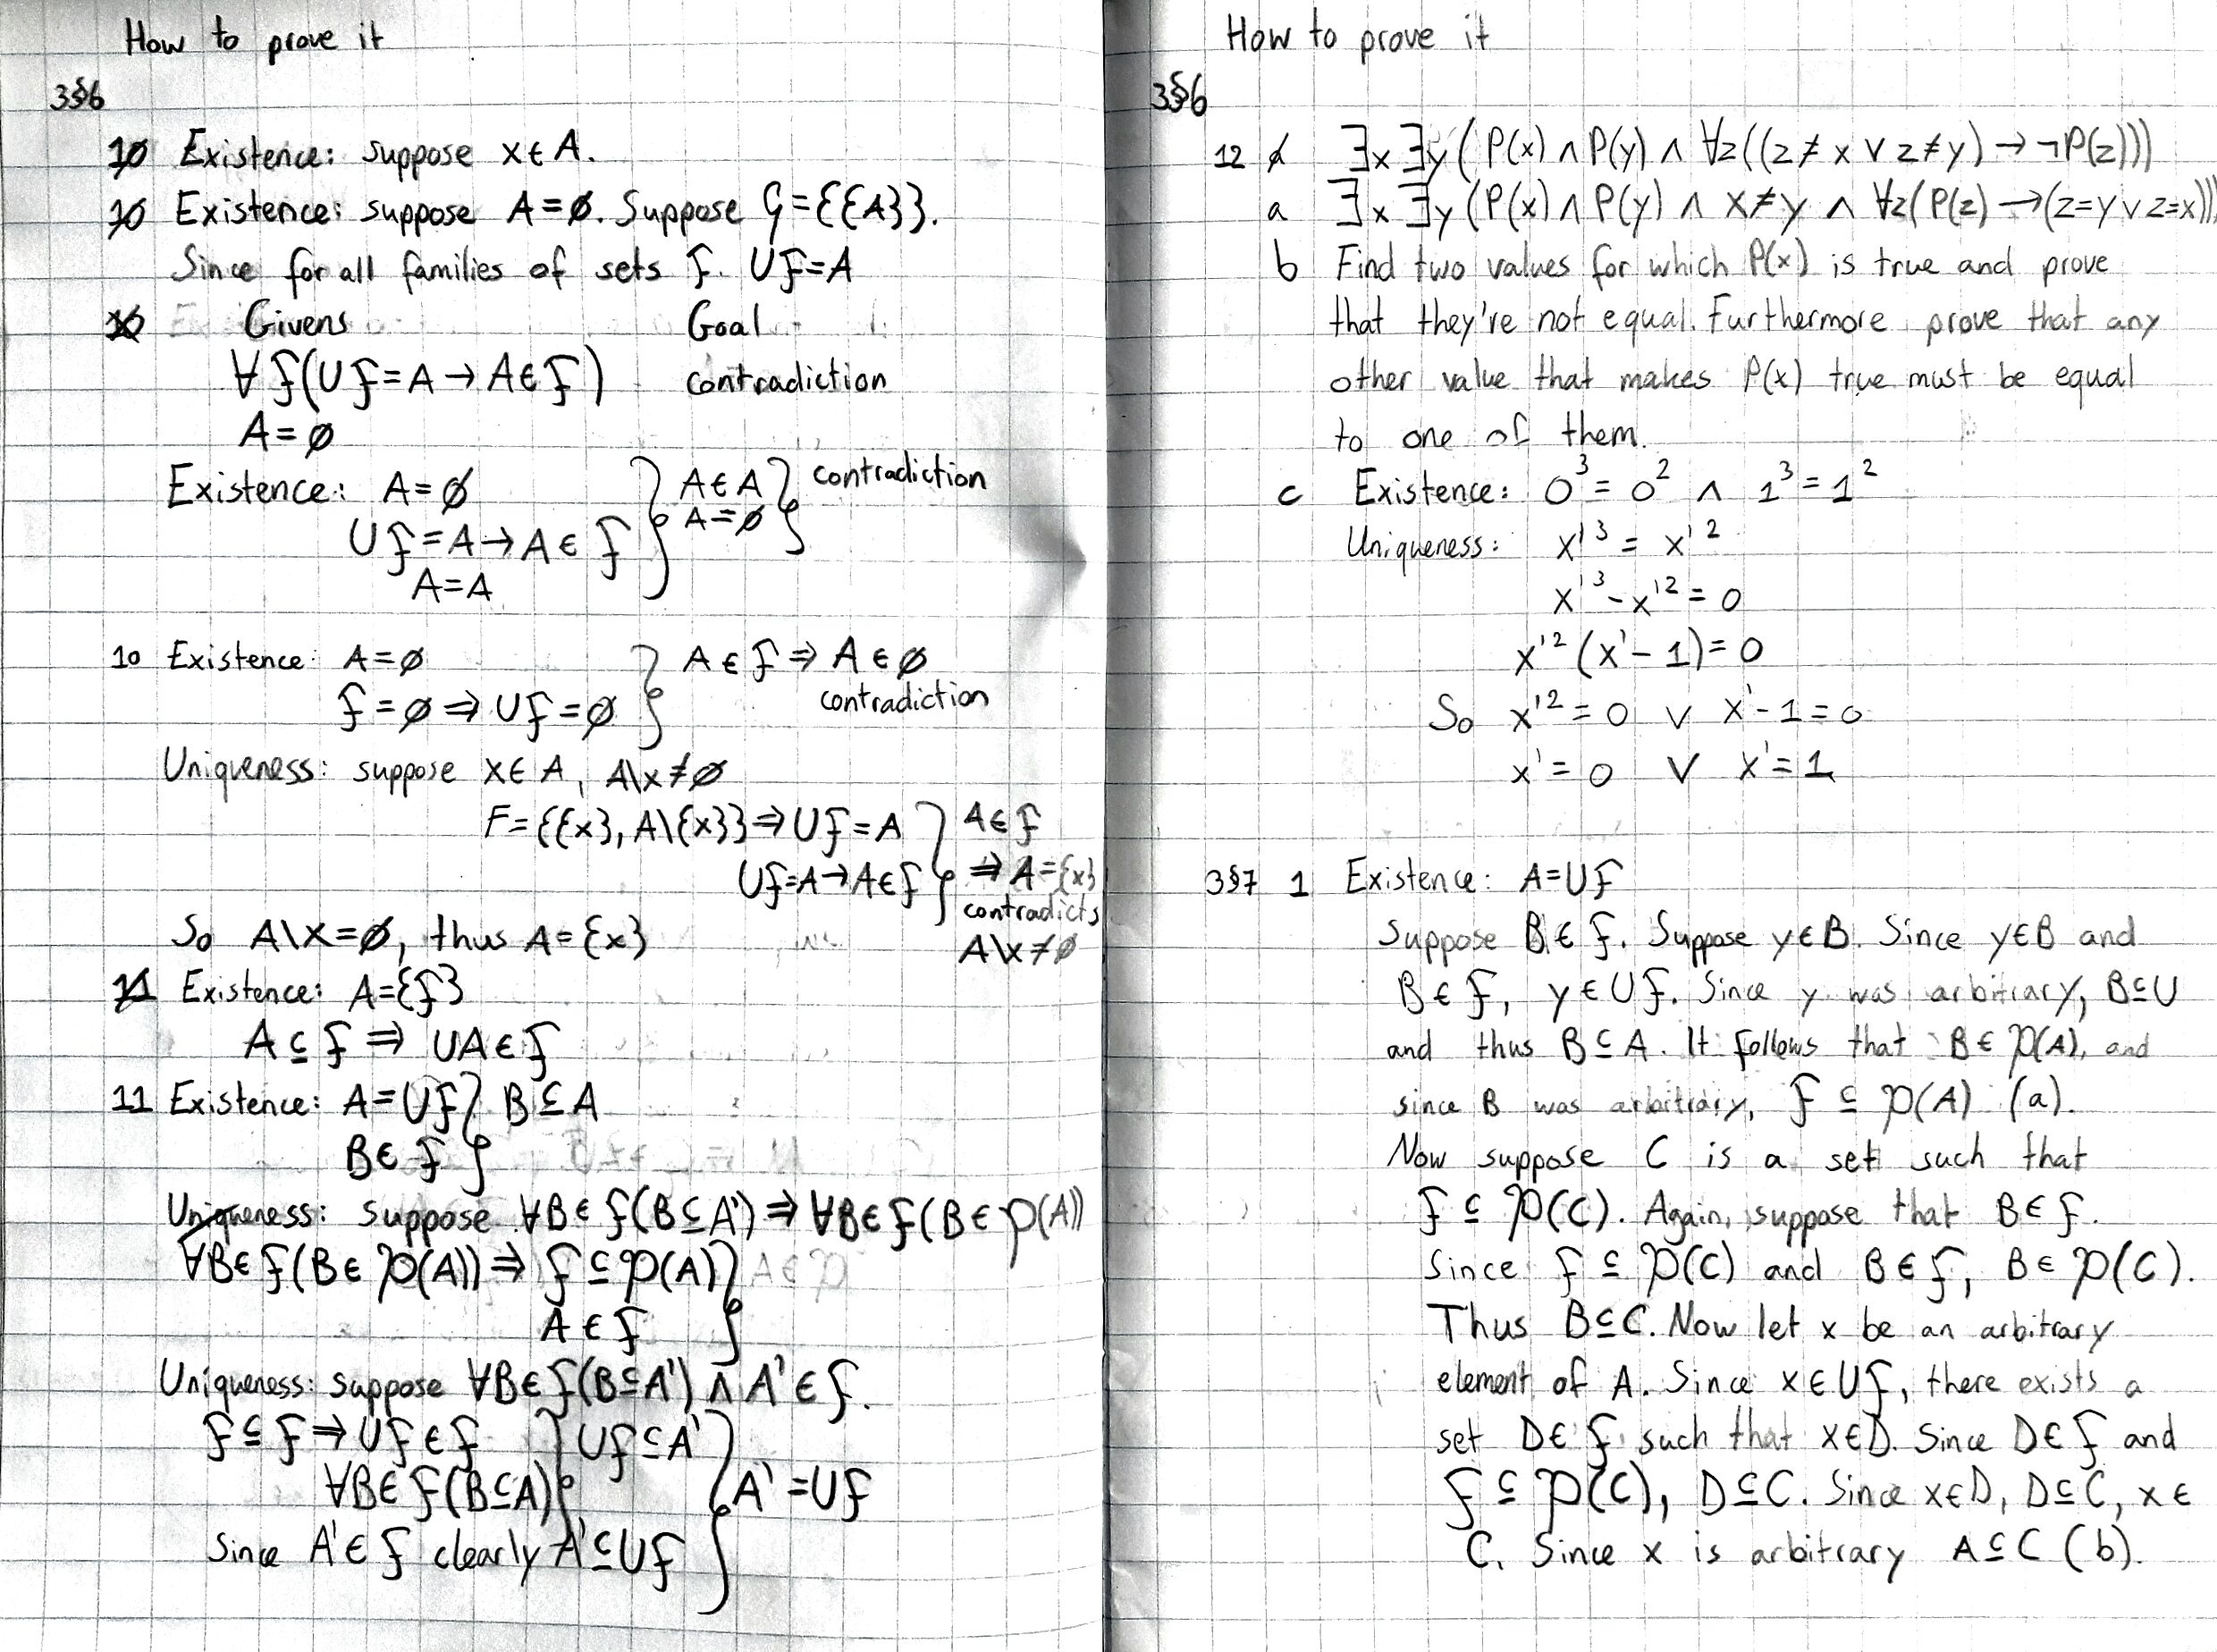 How to prove it
3§6
10 Existence: suppose x∈A.
10 Existence: suppose A=∅. Suppose G={{A}}.
Since for all families of sets F. ∪F=A
10 Givens Goal
∀F(∪F=A→A∈F) contradiction
A=∅
Existence: A=∅ } A∈A } contradiction
∪F=A→A∈F A=∅
A=A
10 Existence: A=∅ } A∈F⇒A∈∅
F=∅⇒∪F=∅ contradiction
Uniqueness: suppose x∈A, A\x≠∅
F={{x},A\{x}}⇒∪F=A } A∈F
∪F=A→A∈F ⇒A={x}
contradicts
So A\x=∅, thus A={x} A\x≠∅
11 Existence: A={F}
A⊆F⇒∪A∈F
11 Existence: A=∪F } B⊆A
B∈F
Uniqueness: suppose ∀B∈F(B⊆A')⇒∀B∈F(B∈P(A))
∀B∈F(B∈P(A))⇒F⊆P(A) }
A∈F
Uniqueness: suppose ∀B∈F(B⊆A')∧A'∈F.
F⊆F⇒∪F∈F } ∪F⊆A' } A'=∪F
∀B∈F(B⊆A)
Since A'∈F clearly A'⊆∪F
How to prove it
3§6
12 a ∃x∃y(P(x)∧P(y)∧∀z((z≠x∨z≠y)→¬P(z)))
a ∃x∃y(P(x)∧P(y)∧x≠y∧∀z(P(z)→(z=y∨z=x)))
b Find two values for which P(x) is true and prove
that they're not equal. Furthermore prove that any
other value that makes P(x) true must be equal
to one of them.
c Existence: 0³=0² ∧ 1³=1²
Uniqueness: x'³=x'²
x'³-x'²=0
x'²(x'-1)=0
So x'²=0 ∨ x'-1=0
x'=0 ∨ x'=1
3§7 1 Existence: A=∪F
Suppose B∈F. Suppose y∈B. Since y∈B and
B∈F, y∈∪F. Since y was arbitrary, B⊆∪
and thus B⊆A. It follows that B∈P(A), and
since B was arbitrary, F⊆P(A) (a).
Now suppose C is a set such that
F⊆P(C). Again, suppose that B∈F.
Since F⊆P(C) and B∈F, B∈P(C).
Thus B⊆C. Now let x be an arbitrary
element of A. Since x∈∪F, there exists a
set D∈F such that x∈D. Since D∈F and
F⊆P(C), D⊆C. Since x∈D, D⊆C, x∈
C. Since x is arbitrary A⊆C (b).